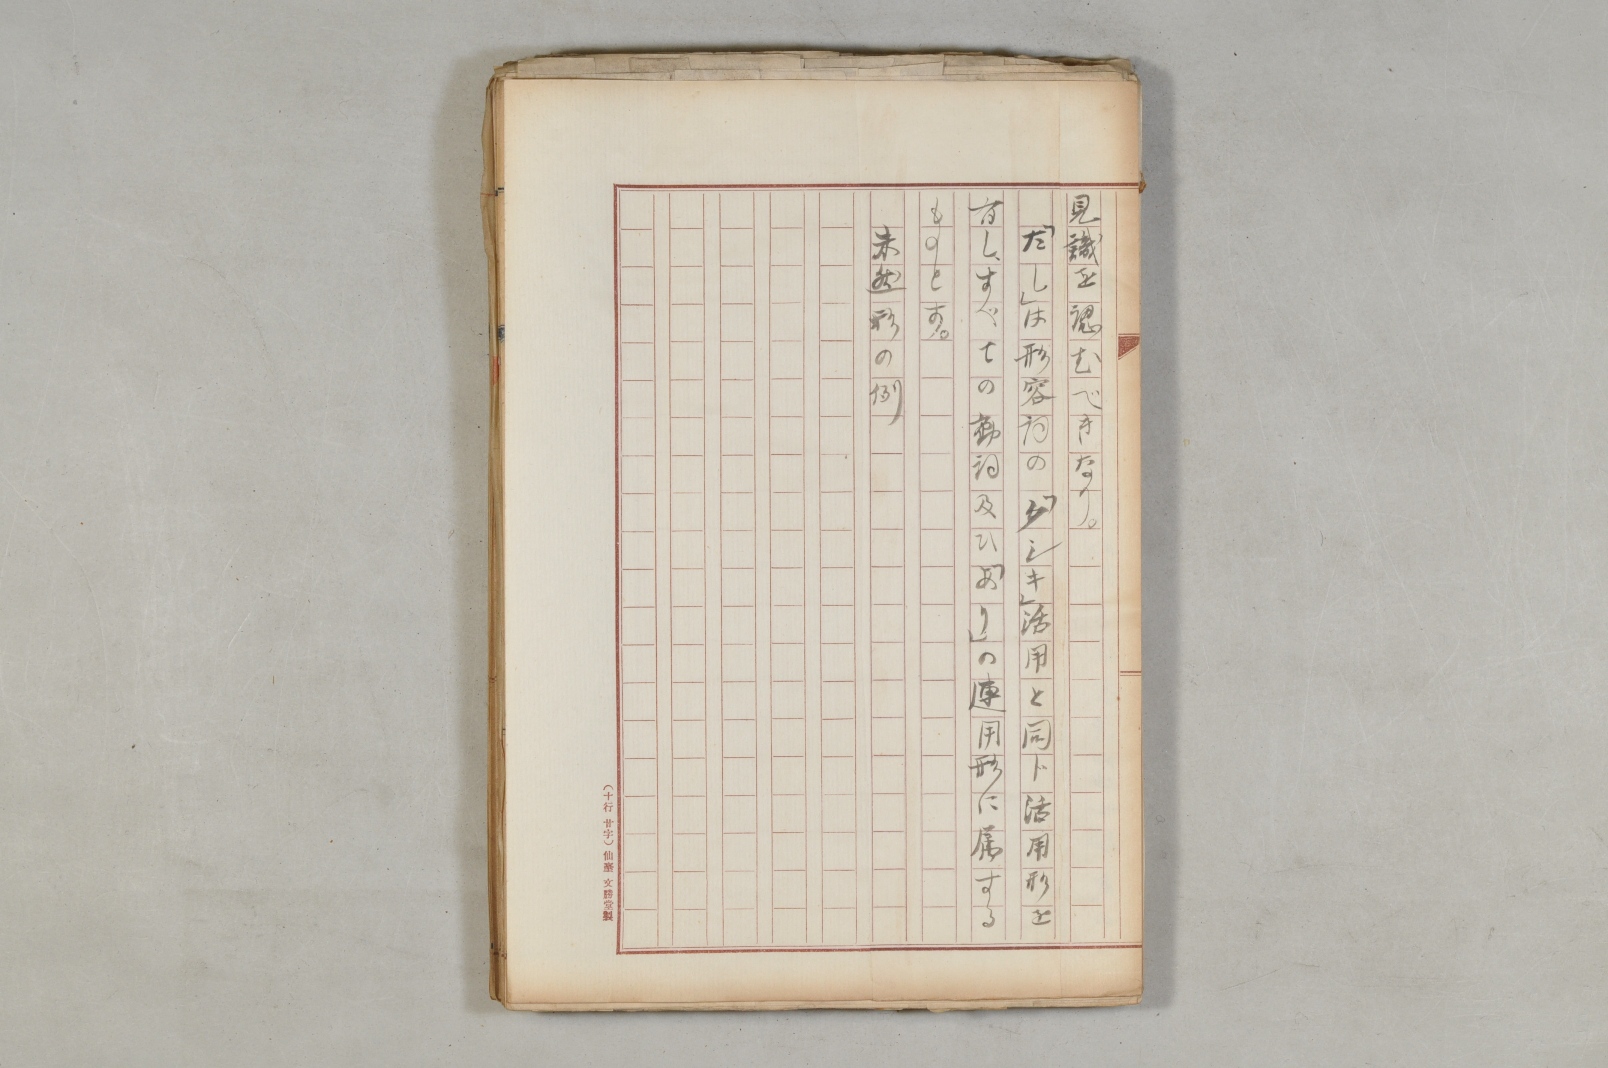 見識を認むべきなり。
「たし」は形容詞の「クシキ」活用と同じ活用形を
有し、すべての動詞及ひ「あり」の連用形に属する
ものとす。
未然形の例
（十行 廿字）仙臺 文勝堂製